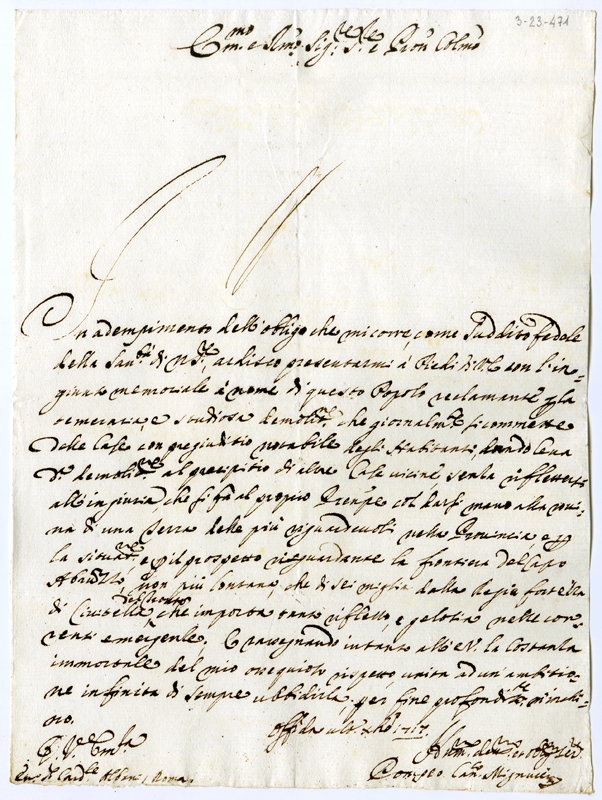 3-23-471
Em.mo e R.mo Sig.re S.re e Pron Colmo
In adempimento dell'obligo che mi corre come Suddito fedele
della San.tà di N. S.re, ardisco presentarmi à Piedi di V.E. con l'in-
giunto memoriale à nome di questo Popolo reclamante p la
temeraria, e studiosa demolit.ne che giornalm.te si commette
delle Case con pregiuditio notabile degli Habitanti, dando Causa
d.a demolit.ne al precipitio di altre Case vicine, senza riflettersi
all'ingiuria che si fà al proprio Prenpe col darsi mano alla roui-
na di una Terra delle più riguardeuoli nella Prouincia e p
la situat.ne e p il prospetto risguardante la frontiera del
Abruzzo non più lontana, che di sei miglia dalla Regia fortezza
di Ciuitella, che importa tanto riflesso, e gelosia nelle cor-
renti emergenze, E rassegnando intanto all'E.V. la Costanza
immortale del mio ossequioso rispetto, unita ad un'ambitio-
ne infinita di sempre ubbidirla, per fine profondam.te m'inchi-
no.
Di V.ra Em.za
Offida ult.o 1717
Hum.mo deu.mo et oblig.mo Ser.re
Em. S. Card.le Albani, Roma
Pompeo Can.co Mignucci